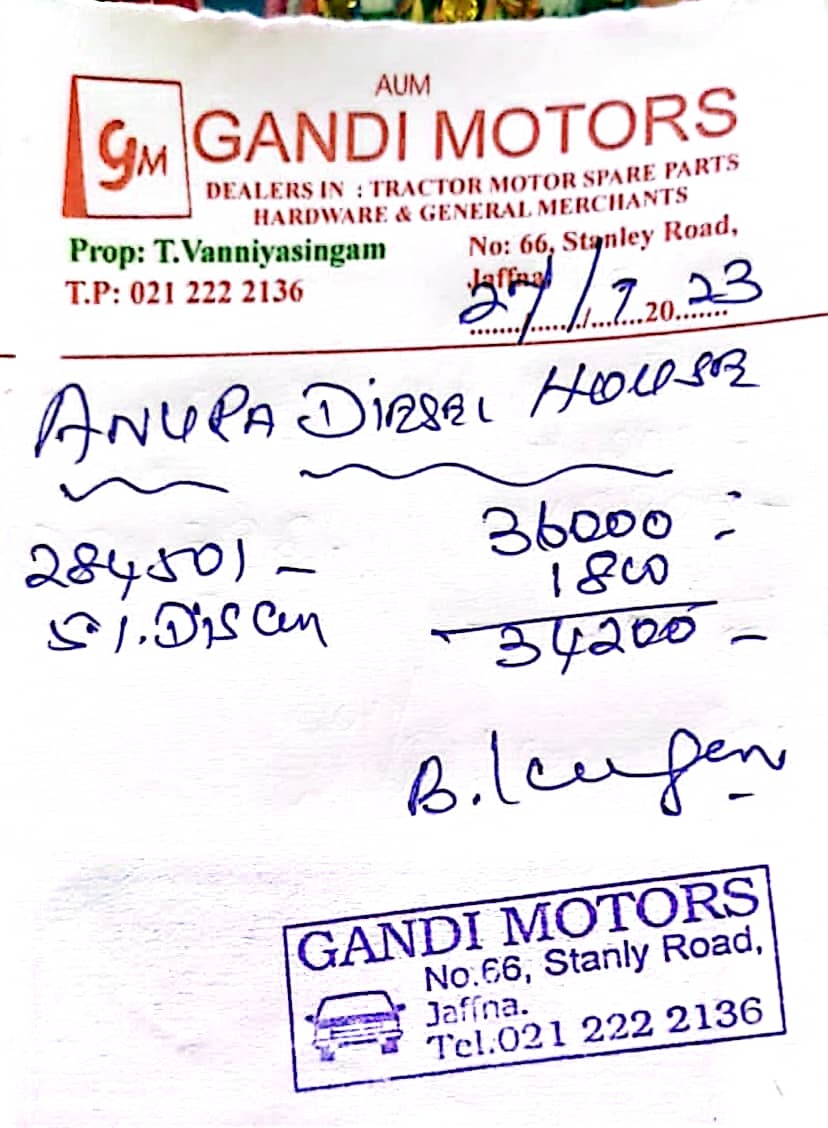 AUM
GM GANDI MOTORS
DEALERS IN : TRACTOR MOTOR SPARE PARTS
HARDWARE & GENERAL MERCHANTS
Prop: T.Vanniyasingam
T.P: 021 222 2136
No: 66, Stanley Road,
Jaffna
27/7 20 23
ANURA DIESEL HOUSE
284501 - 36000 =
5%. DisCun 1800
34200 -
GANDI MOTORS
No.66, Stanly Road,
Jaffna.
Tel.021 222 2136